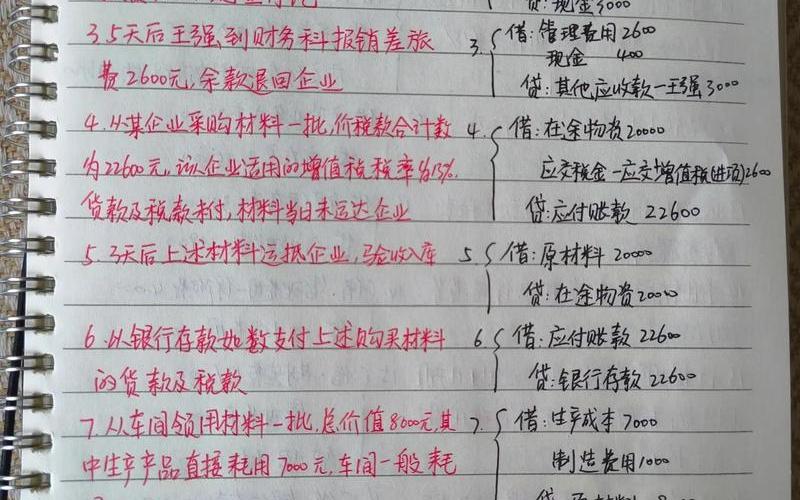 贷:现金3000
3.5天后王强到财务科报销差旅
费2600元,余款退回企业
3.借:管理费用2600
现金 400
贷:其他应收款一王强3000
4.从某企业采购材料一批,价税款合计数
为22600元,该企业适用的增值税税率为13%.
货款及税款未付,材料当日未运达企业
4.借:在途物资20000
应交税金一应交增值税(进项)2600
贷:应付账款 22600
5.3天后上述材料运抵企业,验收入库
5.借:原材料 20000
贷:在途物资20000
6.以银行存款如数支付上述购买材料
的货款及税款
6.借:应付账款 22600
贷:银行存款 22600
7.从车间领用材料一批,总价值8000元,其
中生产产品直接耗用7000元,车间一般耗
7.借:生产成本 7000
制造费用1000